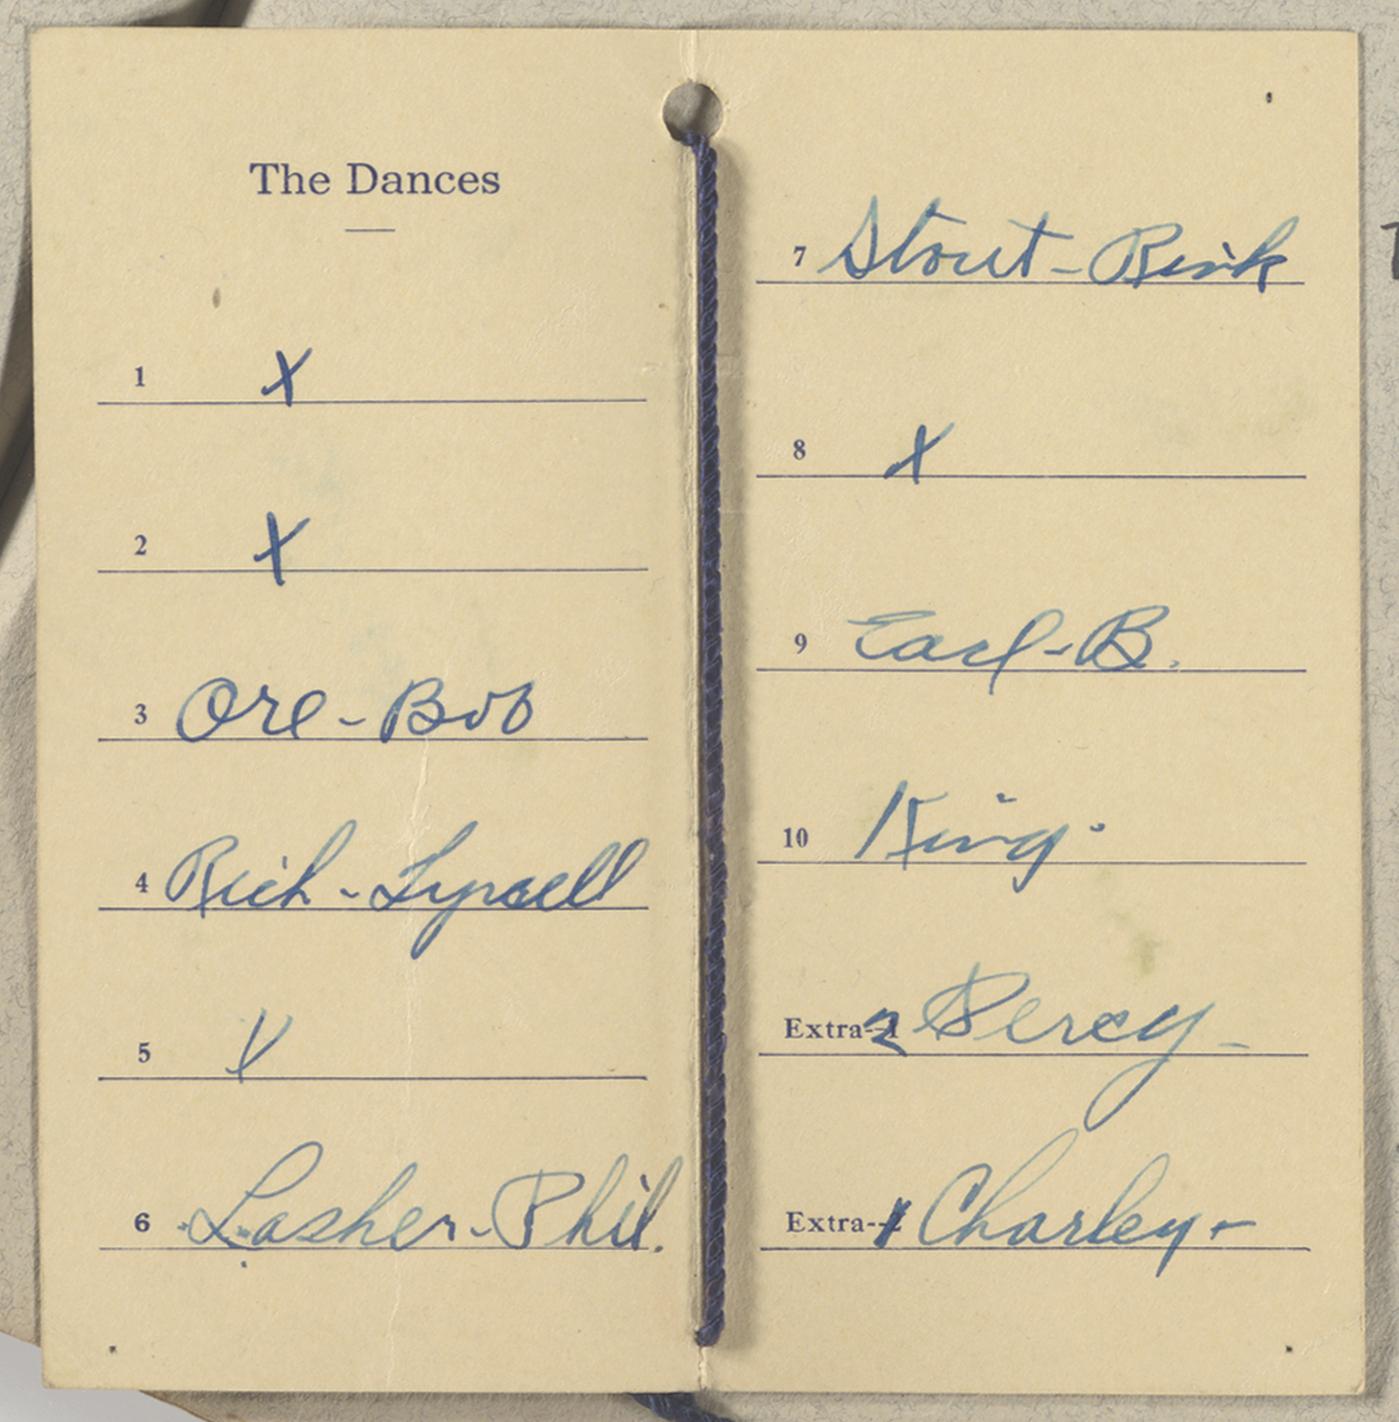 The Dances
1 X
2 X
3 Ore - Bob
4 Rich - Lyraell
5 V
6 Lasher - Phil.
7 Stout - Rink
8 X
9 Earl - B.
10 King.
Extra--2 Percy -
Extra--1 Charley -